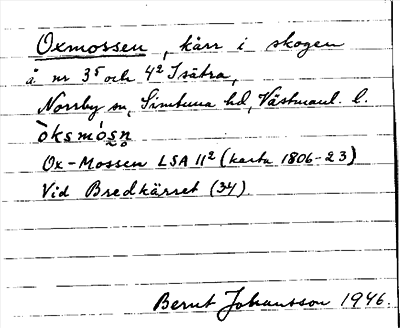 Oxmossen, kärr i skogen
å nr 3⁵ och 4² Isätra,
Norrby sn, Simtuna hd, Västmanl. l.
òksmósn̥
Ox-Mossen LSA 11² (karta 1806-23)
Vid Bredkärret (34).
Bernt Johansson 1946.